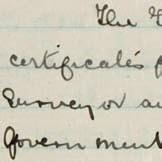 The
certificates
Survey or
Government